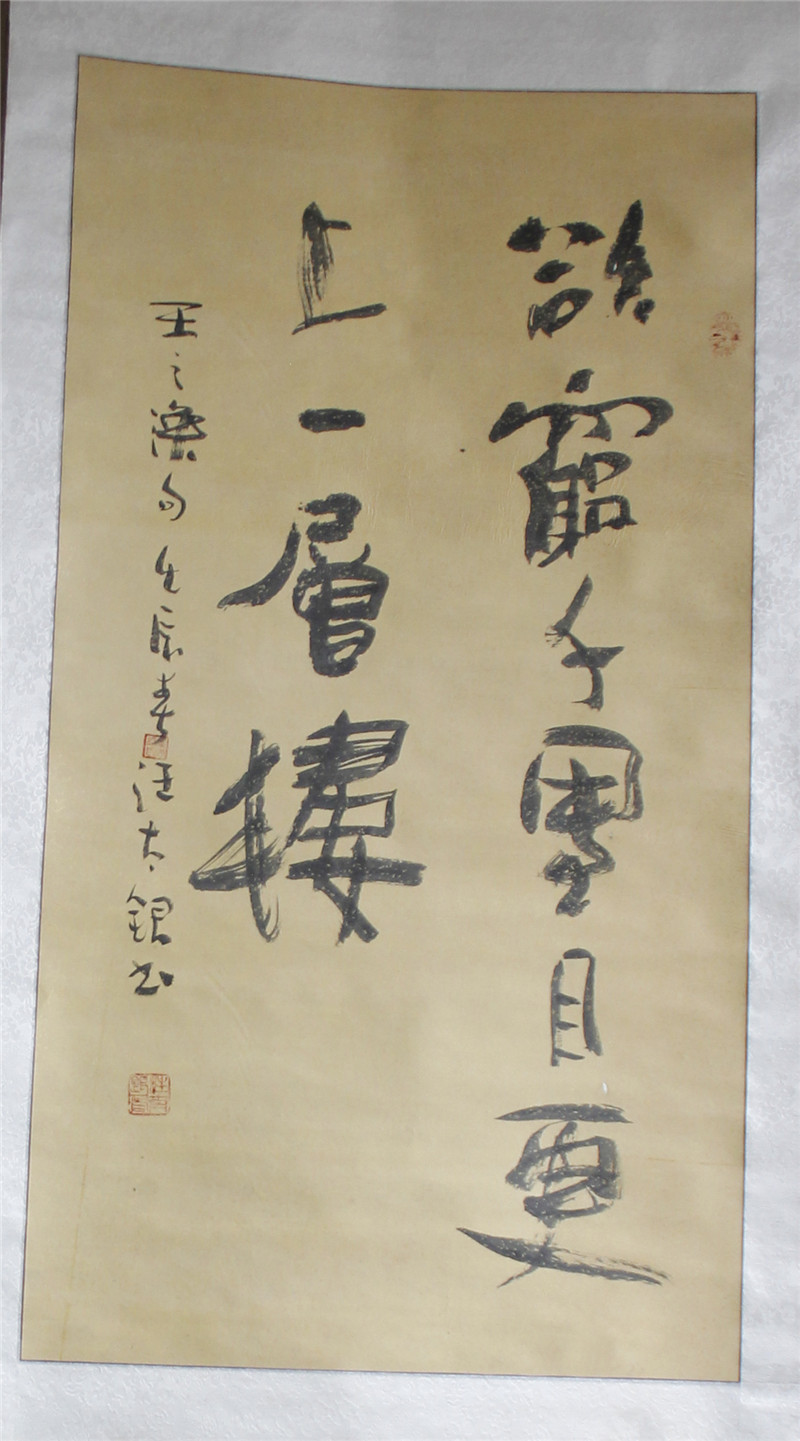 欲窮千里目更
上一層樓
王之渙句壬辰春汪大銀书